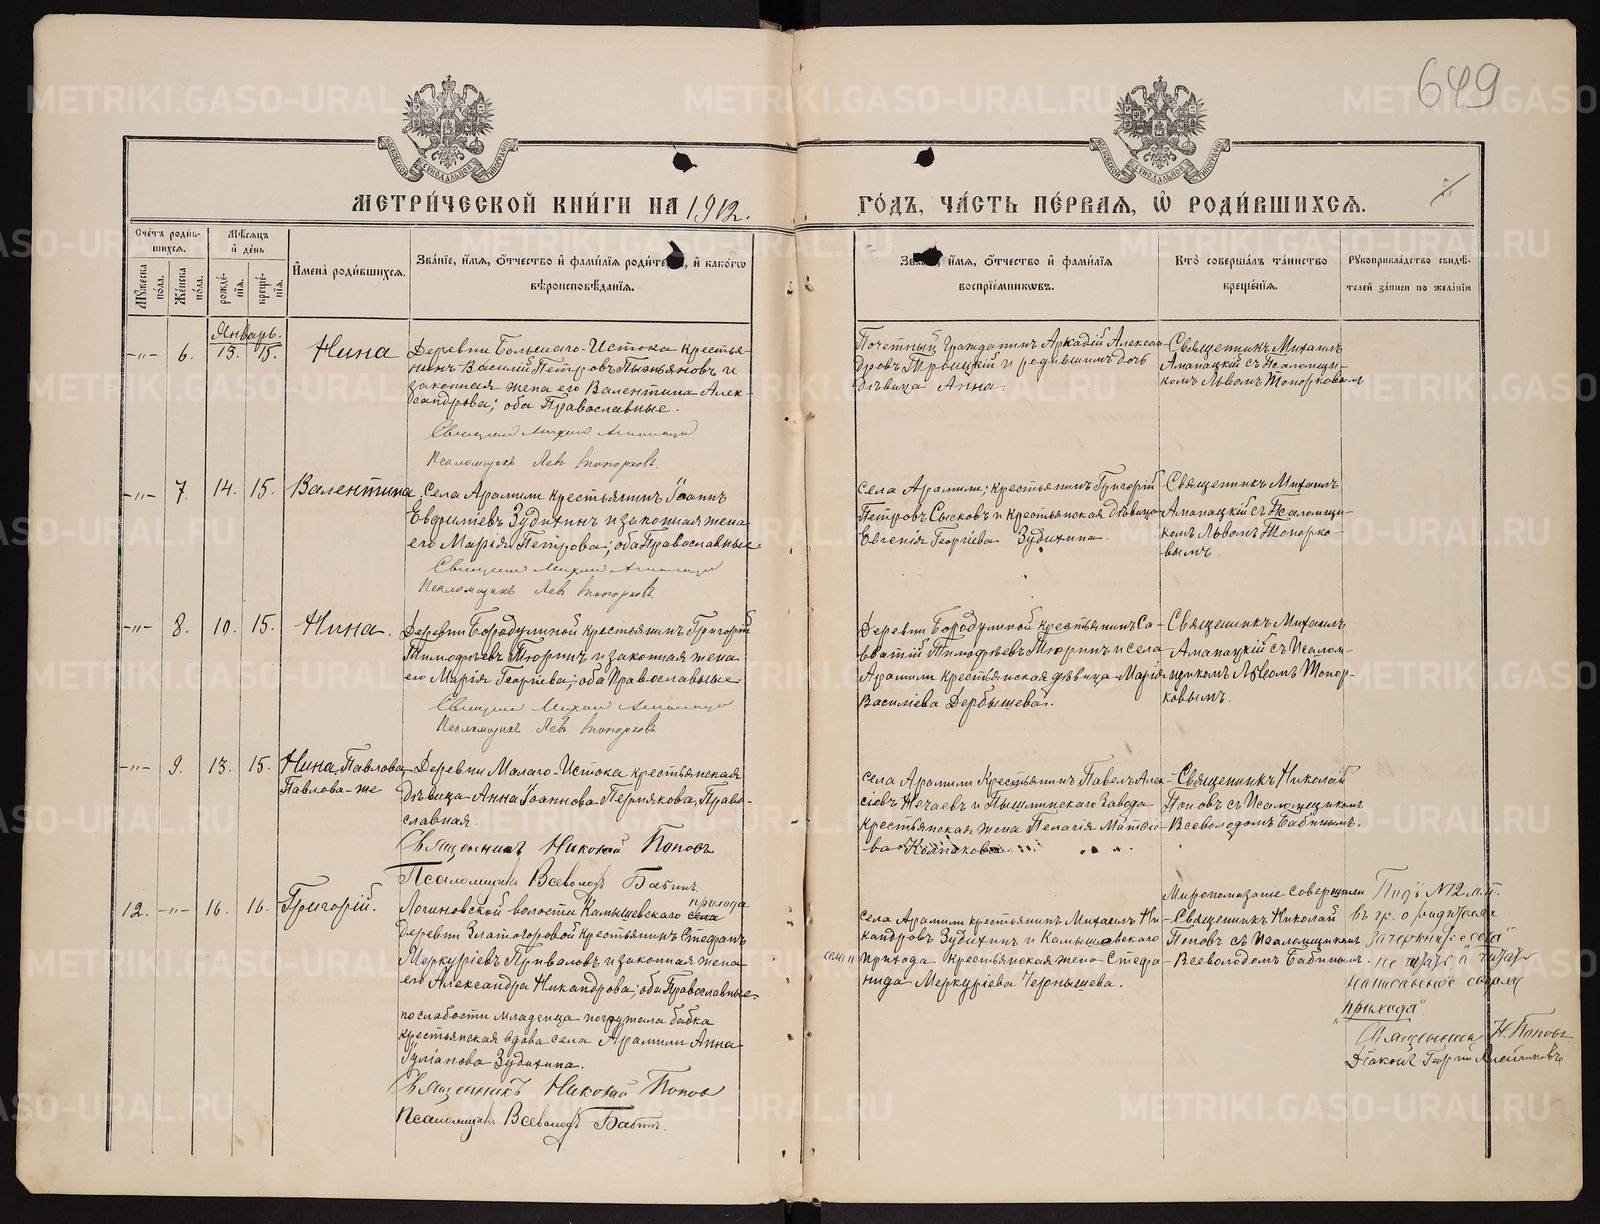 649
МЕТРИ́ЧЕСКОЙ КНИ́ГИ НА 1912.
ГО́ДЪ, ЧА́СТЬ ПЕ́РВАЯ, Ѡ РОДИ́ВШИХСЯ.
Сче́тъ роди́в-
шихся.
Му́жеска по́ла.
Же́нска по́ла.
Мѣ́сяцъ
и҆ де́нь
рожде́-
нія.
креще́-
нія.
И҆мена̀ роди́вшихся.
Зва́ніе, и҆́мя, ѻ҆́тчество и҆ фами́лія роди́телей, и҆ како́гѡ
вѣроисповѣ́данія.
Зва́ніе, и҆́мя, ѻ҆́тчество и҆ фами́лія
воспріе́мниковъ.
Кто̀ соверша́лъ та́инство
креще́нія.
Рукоприкла́дство свидѣ́-
телей за́писи по жела́нію
Январь.
-„- 6. 13. 15. Нина
Деревни Большаго-Истока крестья-
нинъ Василій Петровъ Пьяньковъ и
законная жена его Валентина Алек-
сандрова; оба Православные.
Священникъ Михаилъ
Псаломщикъ Левъ Топорковъ.
Почетный Гражданинъ Аркадій Алексан-
дровъ Троицкій и родившимъ дочь
дѣвица Анна.
Священникъ Михаилъ
Аманацкій съ Псаломщи-
комъ Львомъ Топорковымъ
-„- 7. 14. 15. Валентина
Села Арамили крестьянинъ Іоаннъ
Евфиміевъ Зудихинъ и законная жена
его Марія Петрова; оба Православные.
Священникъ Михаилъ
Псаломщикъ Левъ Топорковъ.
Села Арамили; крестьянинъ Григорій
Петровъ Сысковъ и крестьянская дѣвица
Евгенія Георгіева Зудихина.
Священникъ Михаилъ
Аманацкій съ Псаломщи-
комъ Львомъ Топорко-
вымъ.
-„- 8. 10. 15. Нина.
Деревни Бородулиной крестьянинъ Григорій
Тимофѣевъ Тюринъ и законная жена
его Марія Георгіева; оба Православные.
Священникъ Михаилъ
Псаломщикъ Левъ Топорковъ
Деревни Бородулиной крестьянинъ Са-
вватій Тимофѣевъ Тюринъ и села
Арамили крестьянская дѣвица Марія
Василіева Дербышева.
Священникъ Михаилъ
Аманацкій съ Псалом-
щикомъ Львомъ Топор-
ковымъ.
-„- 9. 13. 15. Нина Павлова
Павлова-же
Деревни Малаго-Истока крестьянская
дѣвица Анна Іоаннова Пермякова, Право-
славная.
Священникъ Николай Поповъ
Псаломщикъ Всеволодъ Бабинъ.
Села Арамили Крестьянинъ Павелъ Алек-
сіевъ Нечаевъ и Пышминскаго Завода
крестьянская жена Пелагія Матѳіе-
ва Колпакова.
Священникъ Николай
Поповъ съ Псаломщикомъ
Всеволодомъ Бабинымъ.
12. -„- 16. 16. Григорій.
прихода
Логиновской волости Камышевскаго села
деревни Златогоровой крестьянинъ Стефанъ
Меркуріевъ Приваловъ и законная жена
его Александра Никандрова; оба Православные.
по слабости младенца погружала бабка
крестьянская вдова села Арамили Анна
Іуліанова Зудихина.
Священникъ Николай Поповъ
Псаломщикъ Всеволодъ Бабинъ.
Села Арамили крестьянинъ Михаилъ Ни-
кандровъ Зудихинъ и Камышевскаго
села прихода крестьянская жена Стефа-
нида Меркуріева Чернышева.
Миропомазаніе совершили
Священникъ Николай
Поповъ съ Псаломщикомъ
Всеволодомъ Бабинымъ.
Подъ №12 м.п.
въ гр. о родителяхъ
зачеркнутое „села"
не читать а читать
написанное сверху
„прихода"
Священникъ Н. Поповъ
Діаконъ Георгій
METRIKI.GASO-URAL.RU